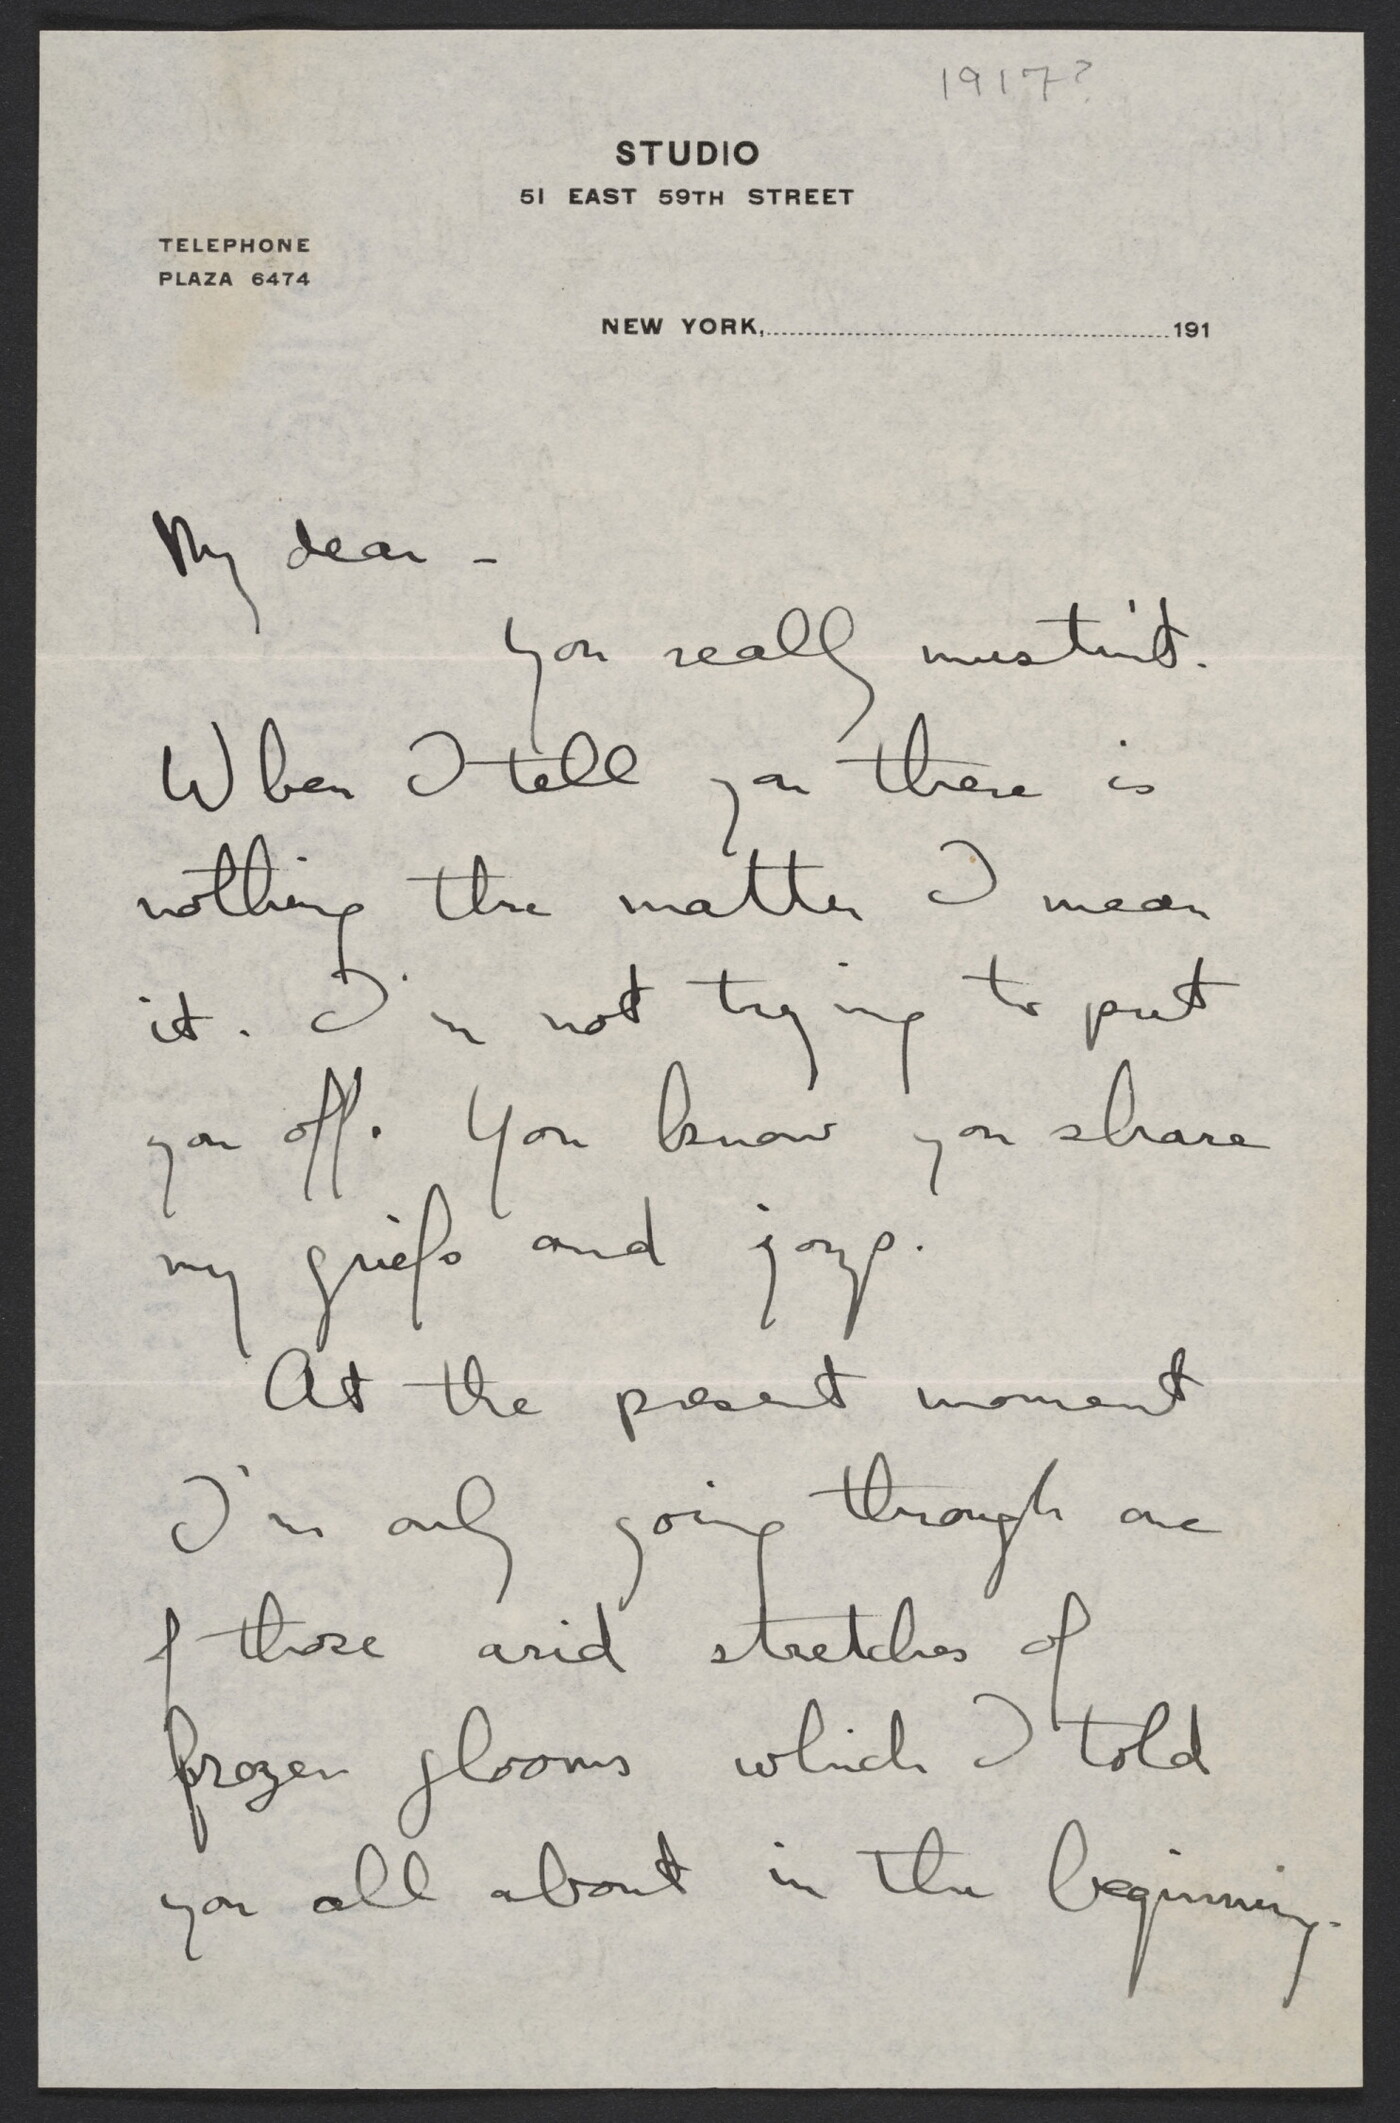 1917?
STUDIO
51 EAST 59TH STREET
TELEPHONE
PLAZA 6474
NEW YORK, 191
My dear -
you really mustn't.
When I tell you there is
nothing the matter I mean
it. I'm not trying to put
you off. You know you share
my griefs and joys.
At the present moment
I'm only going through one
of those arid stretches of
frozen glooms which I told
you all about in the beginning.